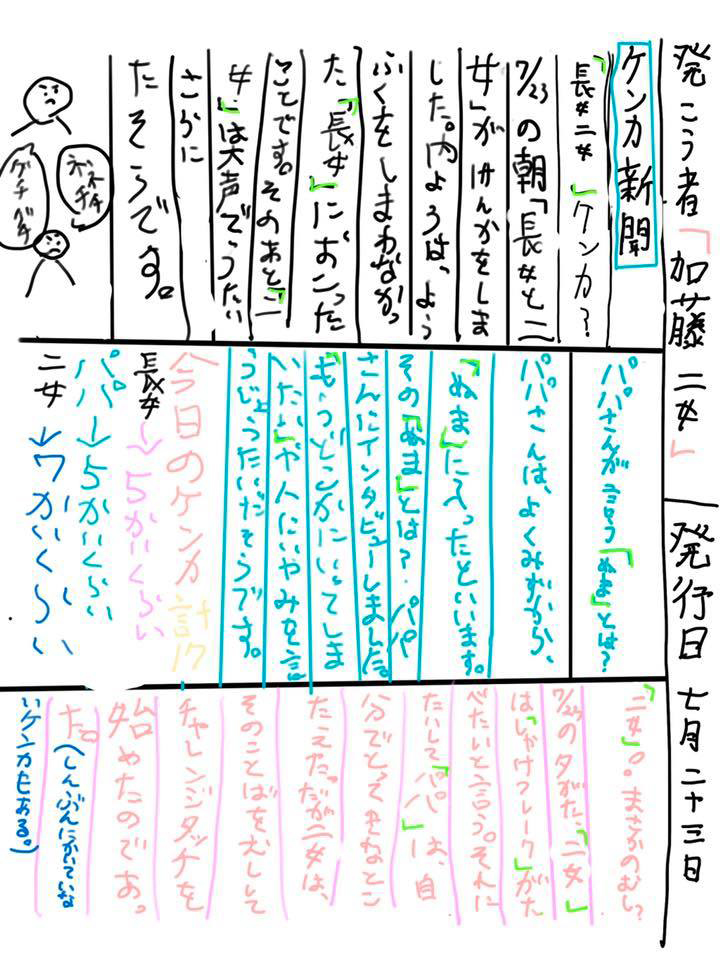 発こう者「加藤 二女」
発行日 七月二十三日
ケンカ新聞
「長女二女」ケンカ?
7/23の朝「長女と二
女」がけんかをしま
した。内ようは、よう
ふくをしまわなかっ
た「長女」におこった
ことです。そのあと「二
女」は大声でうたい
さらに
たそうです。
ネチネチ
グチグチ
パパさんが言う「ぬま」とは?
パパさんは、よくみずから、
「ぬま」に入ったといいます。
その「ぬま」とは?パパ
さんにインタビューしました。
「もうどこかにいってしま
いたい」や人にいやみを言
うじょうたいだそうです。
今日のケンカ
計17
長女→5かいくらい
パパ→5かいくらい
二女→7かいくらい
「二女」。まさかのむし?
7/23の夕がた、「二女」
は「しゃけフレーク」がた
べたいと言う。それに
たいして「パパ」は、自
分でとってきなとこ
たえた。だが二女は、
そのことばをむしして
チャレンジタッチを
始めたのであ。
た。
(しんぶんにかいていな
いケンカもある。)